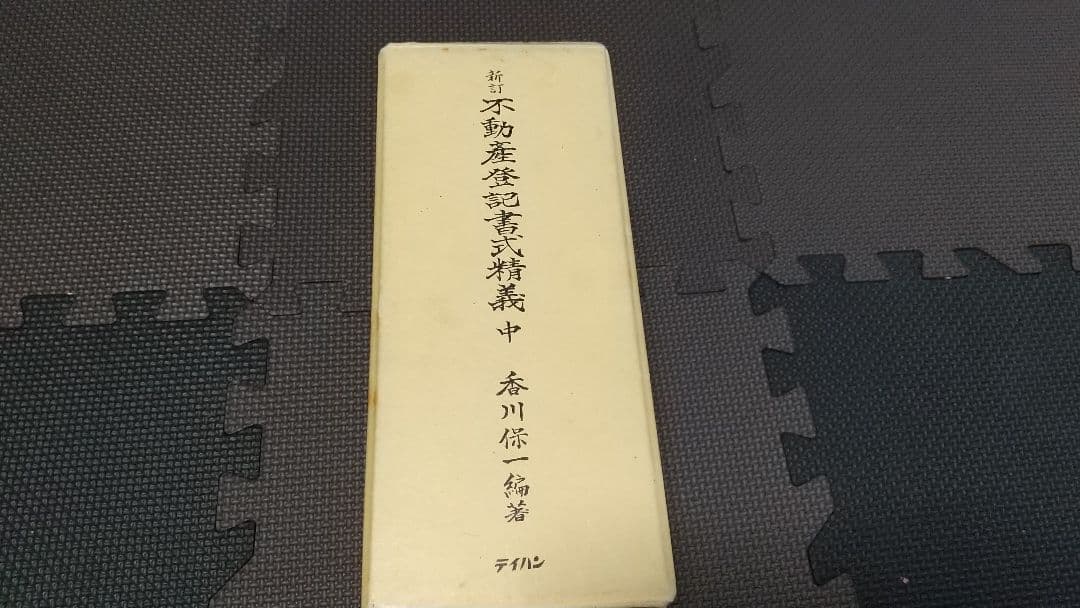 新訂 不動産登記書式精義 中 香川保一編著
テイハン